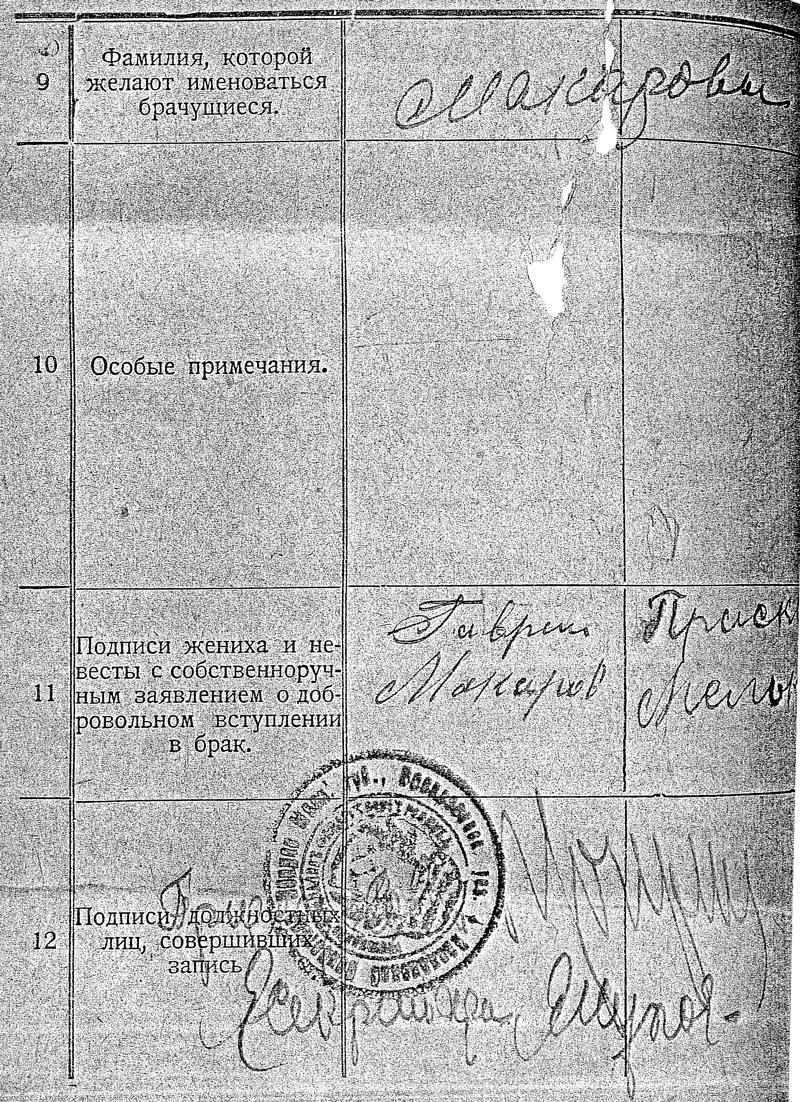 9
Фамилия, которой
желают именоваться
брачущиеся.
Макаровы
10
Особые примечания.
11
Подписи жениха и не-
весты с собственноруч-
ным заявлением о доб-
ровольном вступлении
в брак.
Гавриил
Макаров
Приск
Мель
12
Подписи должностных
лиц, совершивших
запись
губ.,